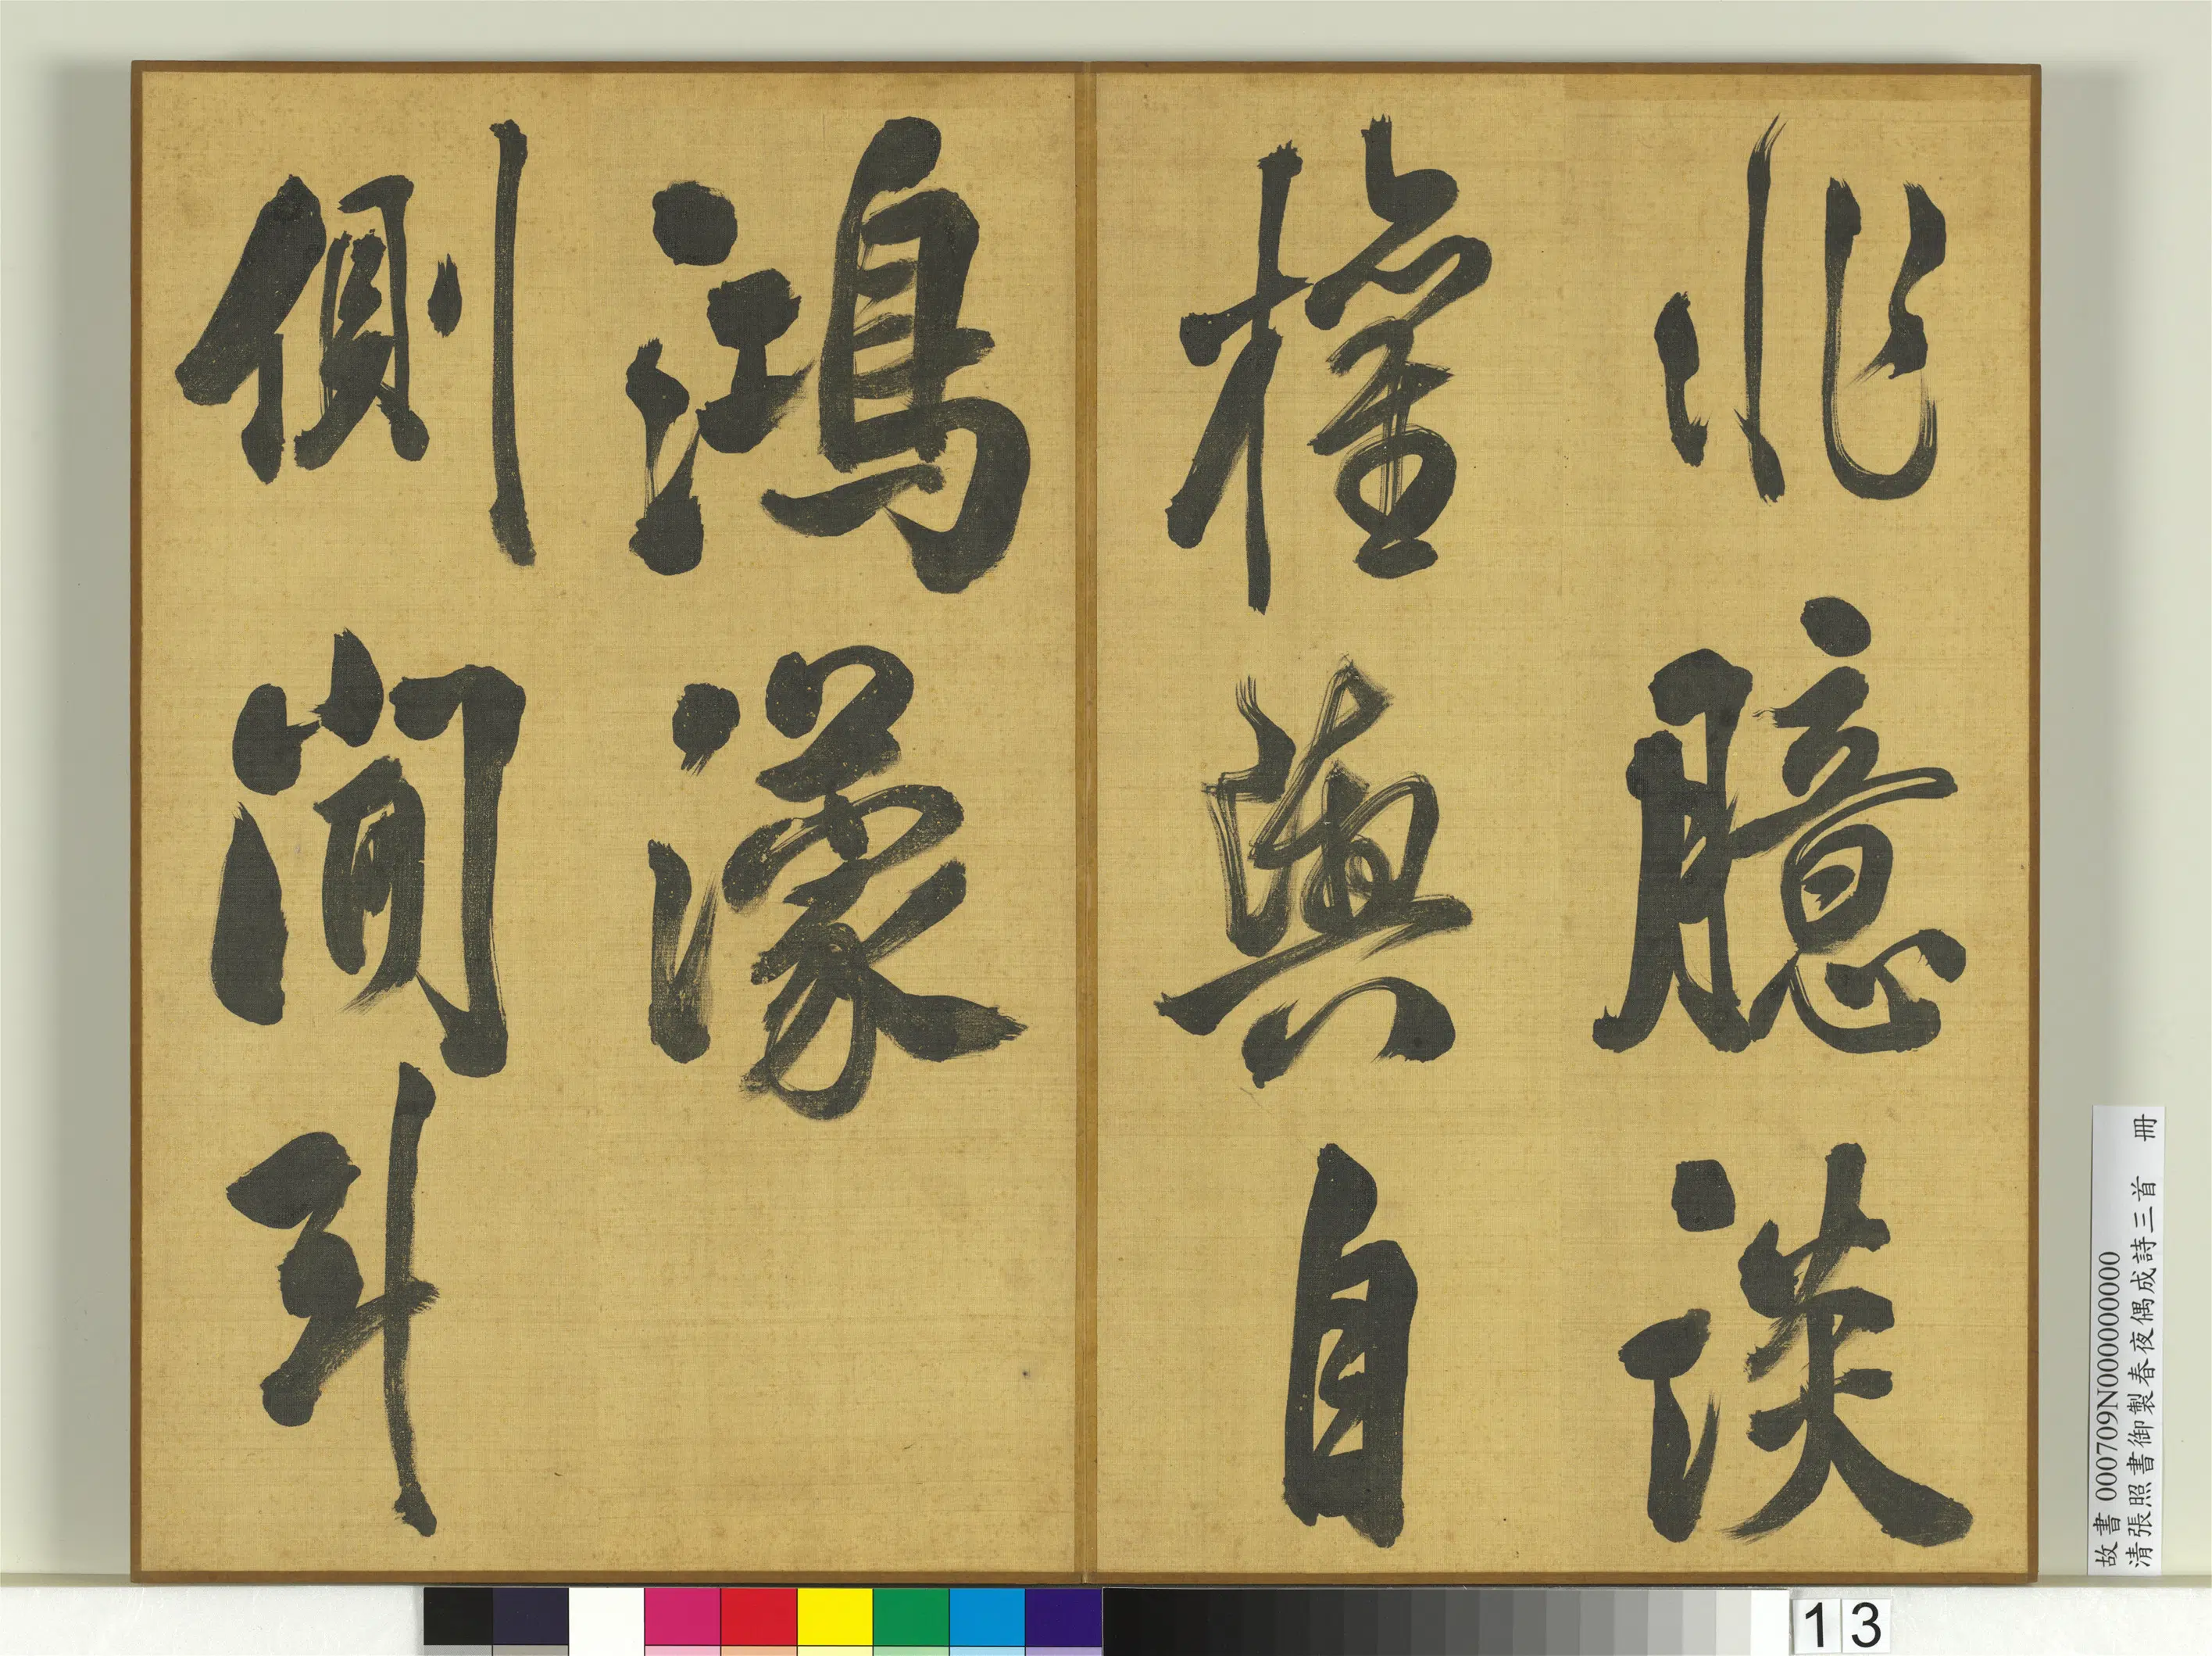 非臆談
權輿自
鴻濛
側聞斗
故書 000709N000000000
清張照書御製春夜偶成詩三首 冊
13